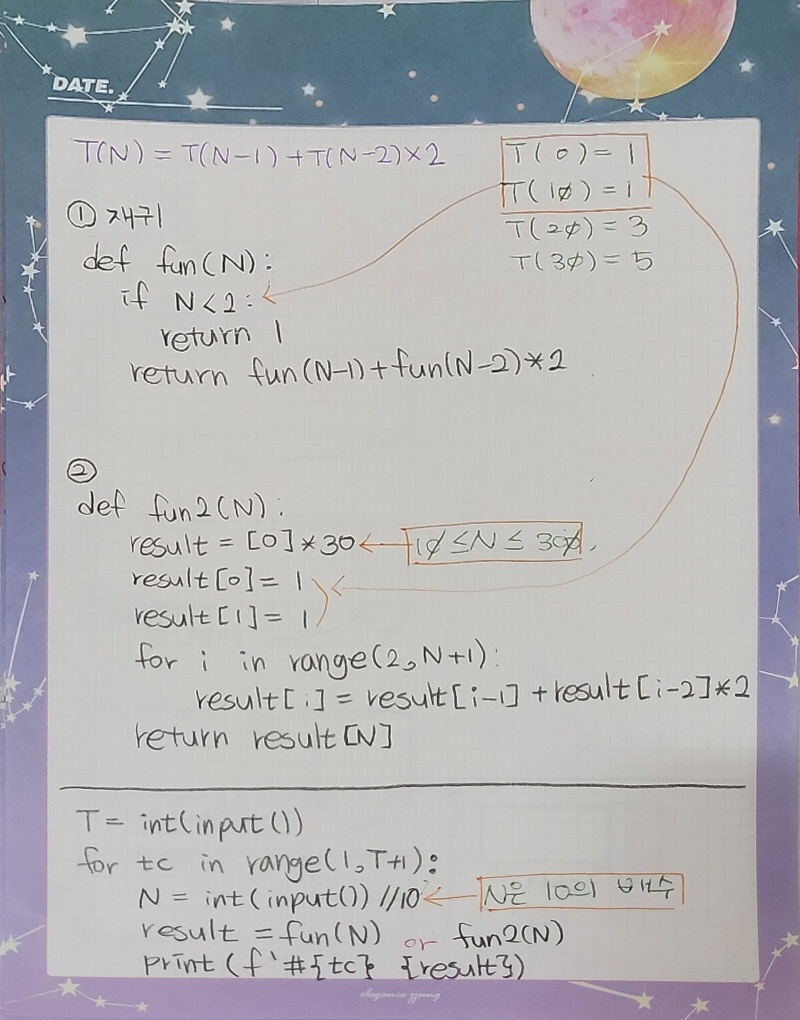 DATE.
T(N) = T(N-1) + T(N-2)×2
T(0) = 1
T(10) = 1
T(20) = 3
T(30) = 5
① 재귀
def fun(N):
if N<2:
return 1
return fun(N-1)+fun(N-2)*2
②
def fun2(N):
result = [0]*30 ← 10 ≤ N ≤ 300
result[0] = 1
result[1] = 1
for i in range(2, N+1):
result[i] = result[i-1] + result[i-2]*2
return result[N]
T = int(input())
for tc in range(1, T+1):
N = int(input()) //10 ← N은 10의 배수
result = fun(N) or fun2(N)
print (f'#{tc} {result})